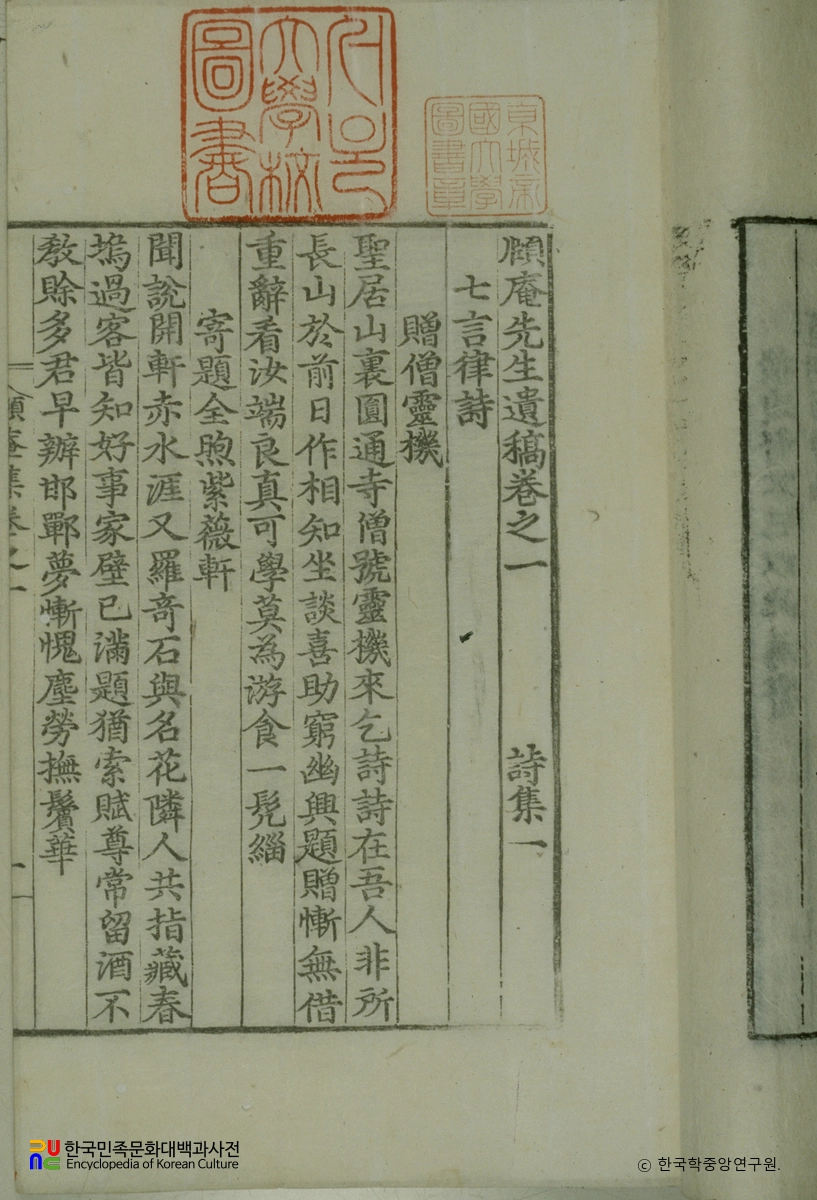 頤庵先生遺稿卷之一 詩集一
七言律詩
贈僧靈機
聖居山裏圓通寺僧號靈機來乞詩詩在吾人非所
長山於前日作相知坐談喜助窮幽興題贈慚無借
重辭看汝端良真可學莫為游食一髡緇
寄題全煦紫薇軒
聞說開軒赤水涯又羅奇石與名花隣人共指藏春
塢過客皆知好事家壁已滿題猶索賦尊常留酒不
敎賒多君早辦邯鄲夢慚愧塵勞撫鬢華
頤庵集卷之一 一
서울大學校圖書
京城帝國大學圖書章
한국민족문화대백과사전
Encyclopedia of Korean Culture
© 한국학중앙연구원.